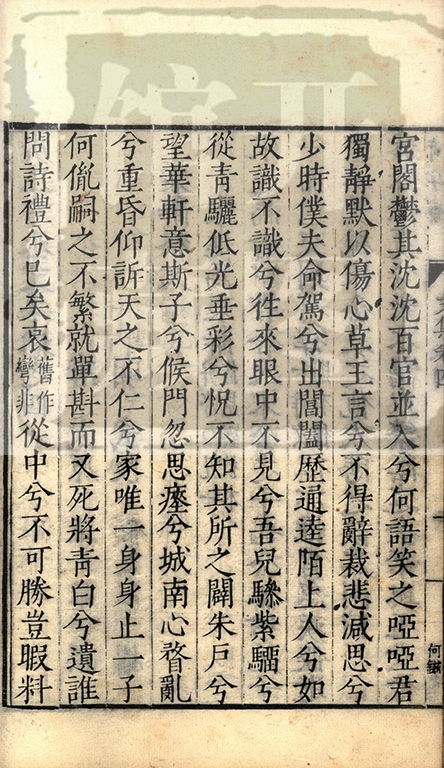 宮閣鬱其沈沈百官並入兮何語笑之啞啞君
獨靜默以傷心草王言兮不得辭裁悲減思兮
少時僕夫命駕兮出閶闔歷通逵陌上人兮如
故識不識兮往來眼中不見兮吾兒驂紫騮兮
從青驪低光垂彩兮怳不知其所之闢朱戶兮
望華軒意斯子兮候門忽思瘞兮城南心瞀亂
兮重昏仰訴天之不仁兮家唯一身身止一子
何胤嗣之不繁就單斟而又死將青白兮遺誰
問詩禮兮已矣哀舊作彎非從中兮不可勝豈暇料
何鎡